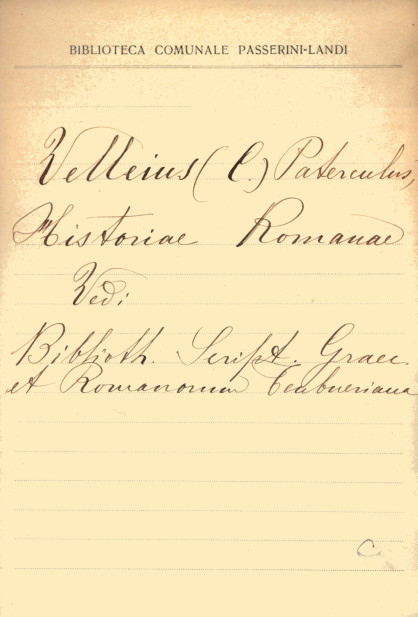 BIBLIOTECA COMUNALE PASSERINI-LANDI
Velleius (C.) Paterculus,
Historiae Romanae
Vedi
Biblioth. Script. Graec.
et Romanorum Teubneriana
C.